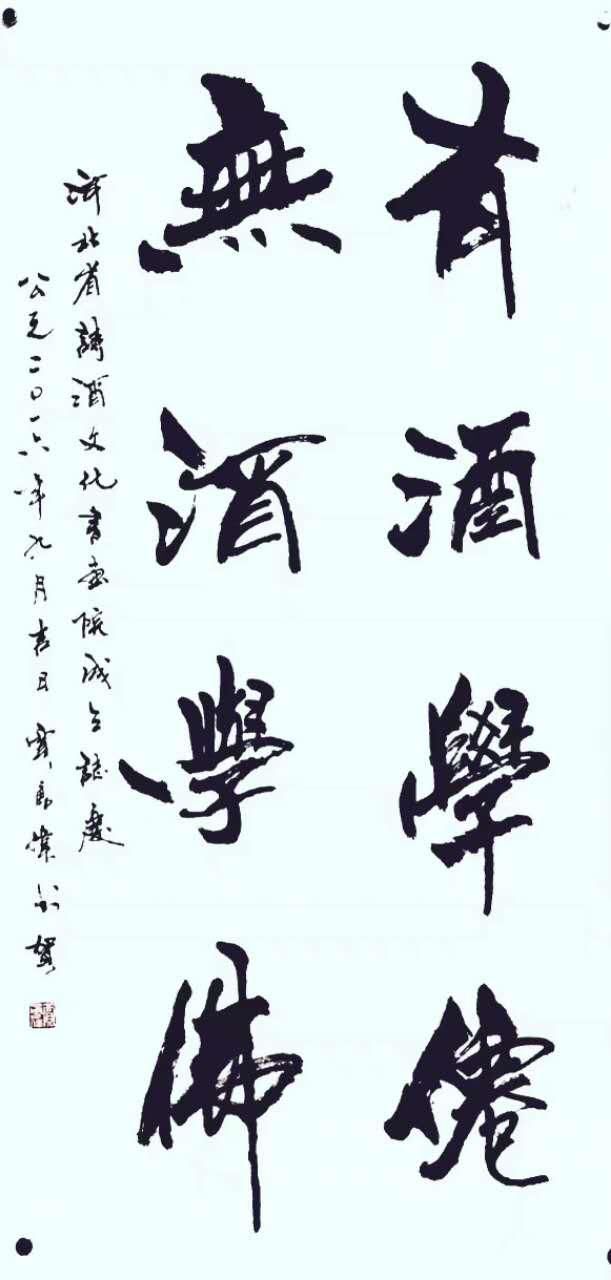 有酒學僊
無酒學佛
河北省詩酒文化書畫院成立誌慶
公元二〇一六年九月吉日 賀